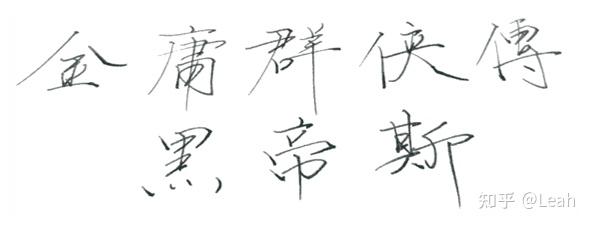 金庸群俠傳
黑帝斯
知乎 @Leah